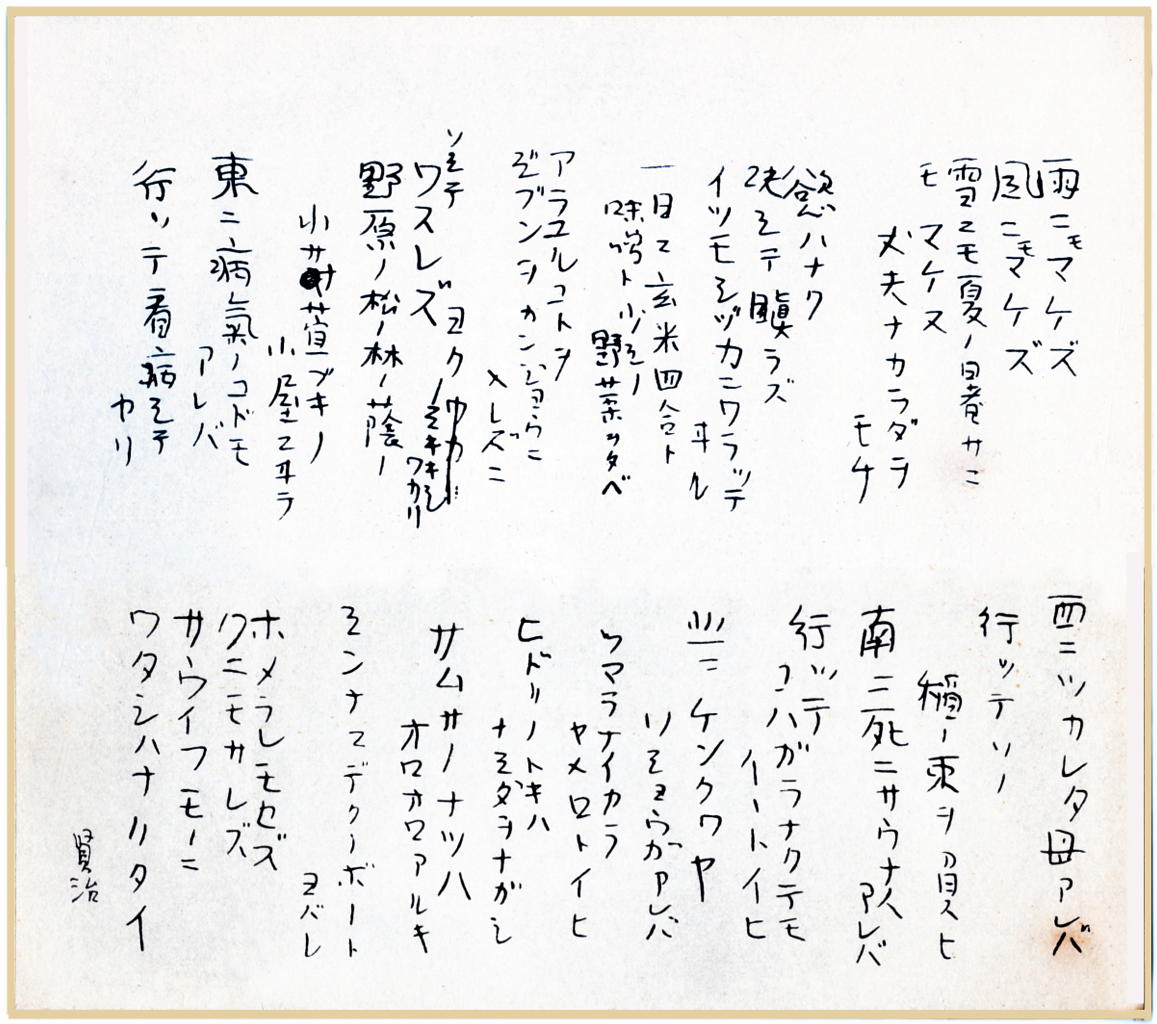 雨ニモマケズ
風ニモマケズ
雪ニモ夏ノ暑サニ
モマケヌ
丈夫ナカラダヲ
モチ
慾ハナク
決シテ瞋ラズ
イツモシヅカニワラッテ
ヰル
一日ニ玄米四合ト
味噌ト少シノ
野菜ヲタベ
アラユルコトヲ
ヂブンヲカンジョウニ
入レズニ
ヨクミキキシワカリ
ソシテ
ワスレズ
野原ノ松ノ林ノ蔭ノ
小サナ萓ブキノ
小屋ニヰテ
東ニ病氣ノコドモ
アレバ
行ッテ看病シテ
ヤリ
西ニツカレタ母アレバ
行ッテソノ
稲ノ束ヲ負ヒ
南ニ死ニサウナ人
アレバ
行ッテ
コハガラナクテモ
イヽトイヒ
北ニケンクヮヤ
ソショウガアレバ
ツマラナイカラ
ヤメロトイヒ
ヒドリノトキハ
ナミダヲナガシ
サムサノナツハ
オロオロアルキ
ミンナニデクノボート
ヨバレ
ホメラレモセズ
クニモサレズ
サウイフモノニ
ワタシハナリタイ
賢治